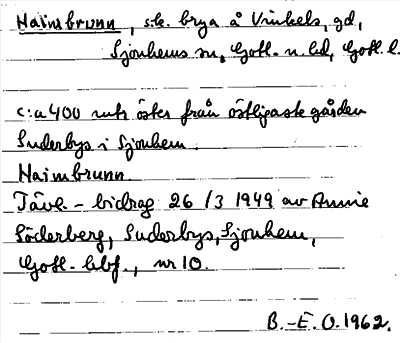 Hainsbrunn, s.k. brya å Vinkels, gd,
Sjonhems sn, Gotl. n. hd, Gotl. l.
c:a 400 mtr öster från östligaste gården
Suderbys i Sjonhem.
Hainsbrunn.
Tävl.- bidrag 26/3 1949 av Annie
Söderberg, Suderbys, Sjonhem,
Gotl. hbf., nr 10.
B.-E. O. 1962.